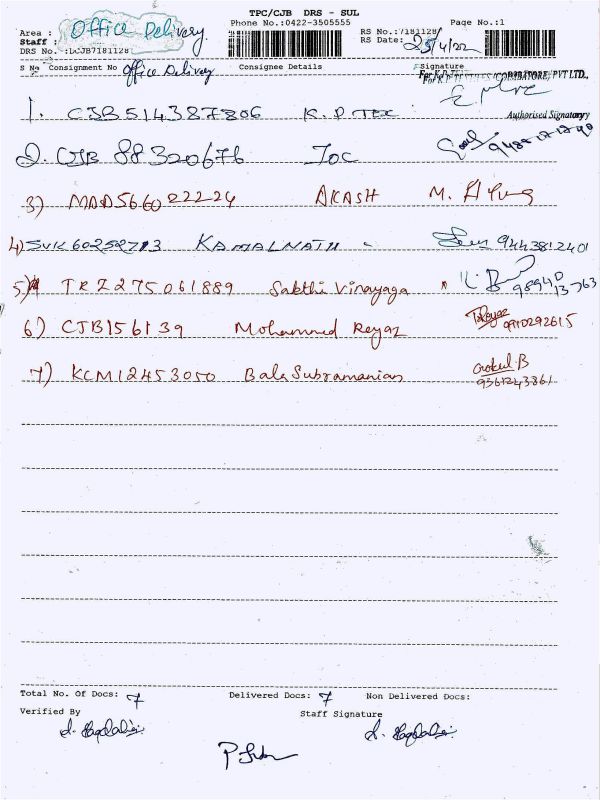 TPC/CJB DRS - SUL
Phone No.:0422-3505555 Page No.:1
Area : Office Delivery RS No.:7181128
Staff : RS Date: 25/4/22
DRS No. :LCJB7181128
S No Consignment No Office Delivery Consignee Details Signature
(COIMBATORE) PVT LTD.,
1. CJB514387806 K.P TEX
Authorised Signatory
2. CJB 88320676 JOC
3) MAD566022224 AKASH M.
4) SVK60252713 KAMALNATH - 9443812401
5) TRZ275061889 Sakthi Vinayaga
6) CJB156139 Mohammed Reyaz 9910292615
7) KCM12453050 Bala Subramanian Gokul.B
9361243861
Total No. Of Docs: 7 Delivered Docs: 7 Non Delivered Docs:
Verified By Staff Signature